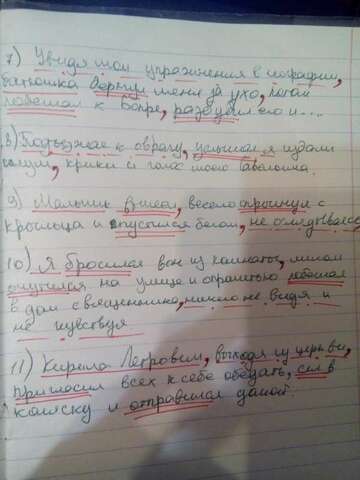 7) Увидя мои упражнения в географии,
батюшка дернул меня за ухо, потом
побежал к Бопре, разбудил его и...
8) Подъезжая к оврагу, услышал я издали
шум, крики и голос моего Савельича.
9) Мальчик вышел, весело прыгнул с
крыльца и спустился бегом, не оглядываясь
10) Я бросился вон из комнаты, мигом
очутился на улице и опрометью побежал
в дом священника, ничего не видя и
не чувствуя
11) Кирила Петрович, выходя из церкви,
пригласил всех к себе обедать, сел в
коляску и отправился домой.